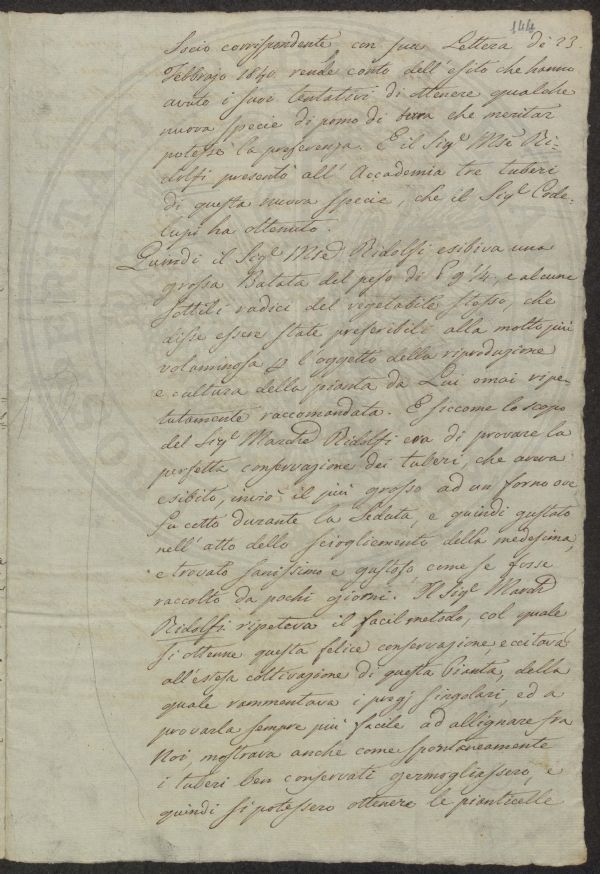 144
Socio corrispondente con sua Lettera de 23.
Febbrajo 1840 rende conto dell'esito che hanno
avuto i suoi tentativi di ottenere qualche
nuova specie di pomo di terra che meritar
potesse la preferenza. E il Sigᵉ Mse Ri-
dolfi presentò all'Accademia tre tuberi
di questa nuova specie, che il Sigᵉ Code-
lupi ha ottenuto.
Quindi il Sigᵉ Mse Ridolfi esibiva una
grossa Batata del peso di ℔ 9 1/4, e alcune
sottili radici del vegetabile stesso, che
disse essere state preferibili alla molto più
voluminosa p l'oggetto della riproduzione
e cultura della pianta da Lui omai ripe-
tutamente raccomandata. E siccome lo scopo
del Sigᵉ March Ridolfi era di provare la
perfetta conservazione dei tuberi, che aveva
esibito, inviò il più grosso ad un forno ove
fu cotto durante la Seduta, e quindi gustato
nell'atto dello scioglimento della medesima,
e trovato sanissimo e gustoso come se fosse
raccolto da pochi giorni. Il Sigᵉ March
Ridolfi ripeteva il facil metodo, col quale
si ottenne questa felice conservazione eccitava
all'estesa coltivazione di questa Pianta, della
quale rammentava i pregj singolari, ed a
provarla sempre più facile ad allignare fra
Noi, mostrava anche come spontaneamente
i tuberi ben conservati germogliassero, e
quindi si potessero ottenere le pianticelle